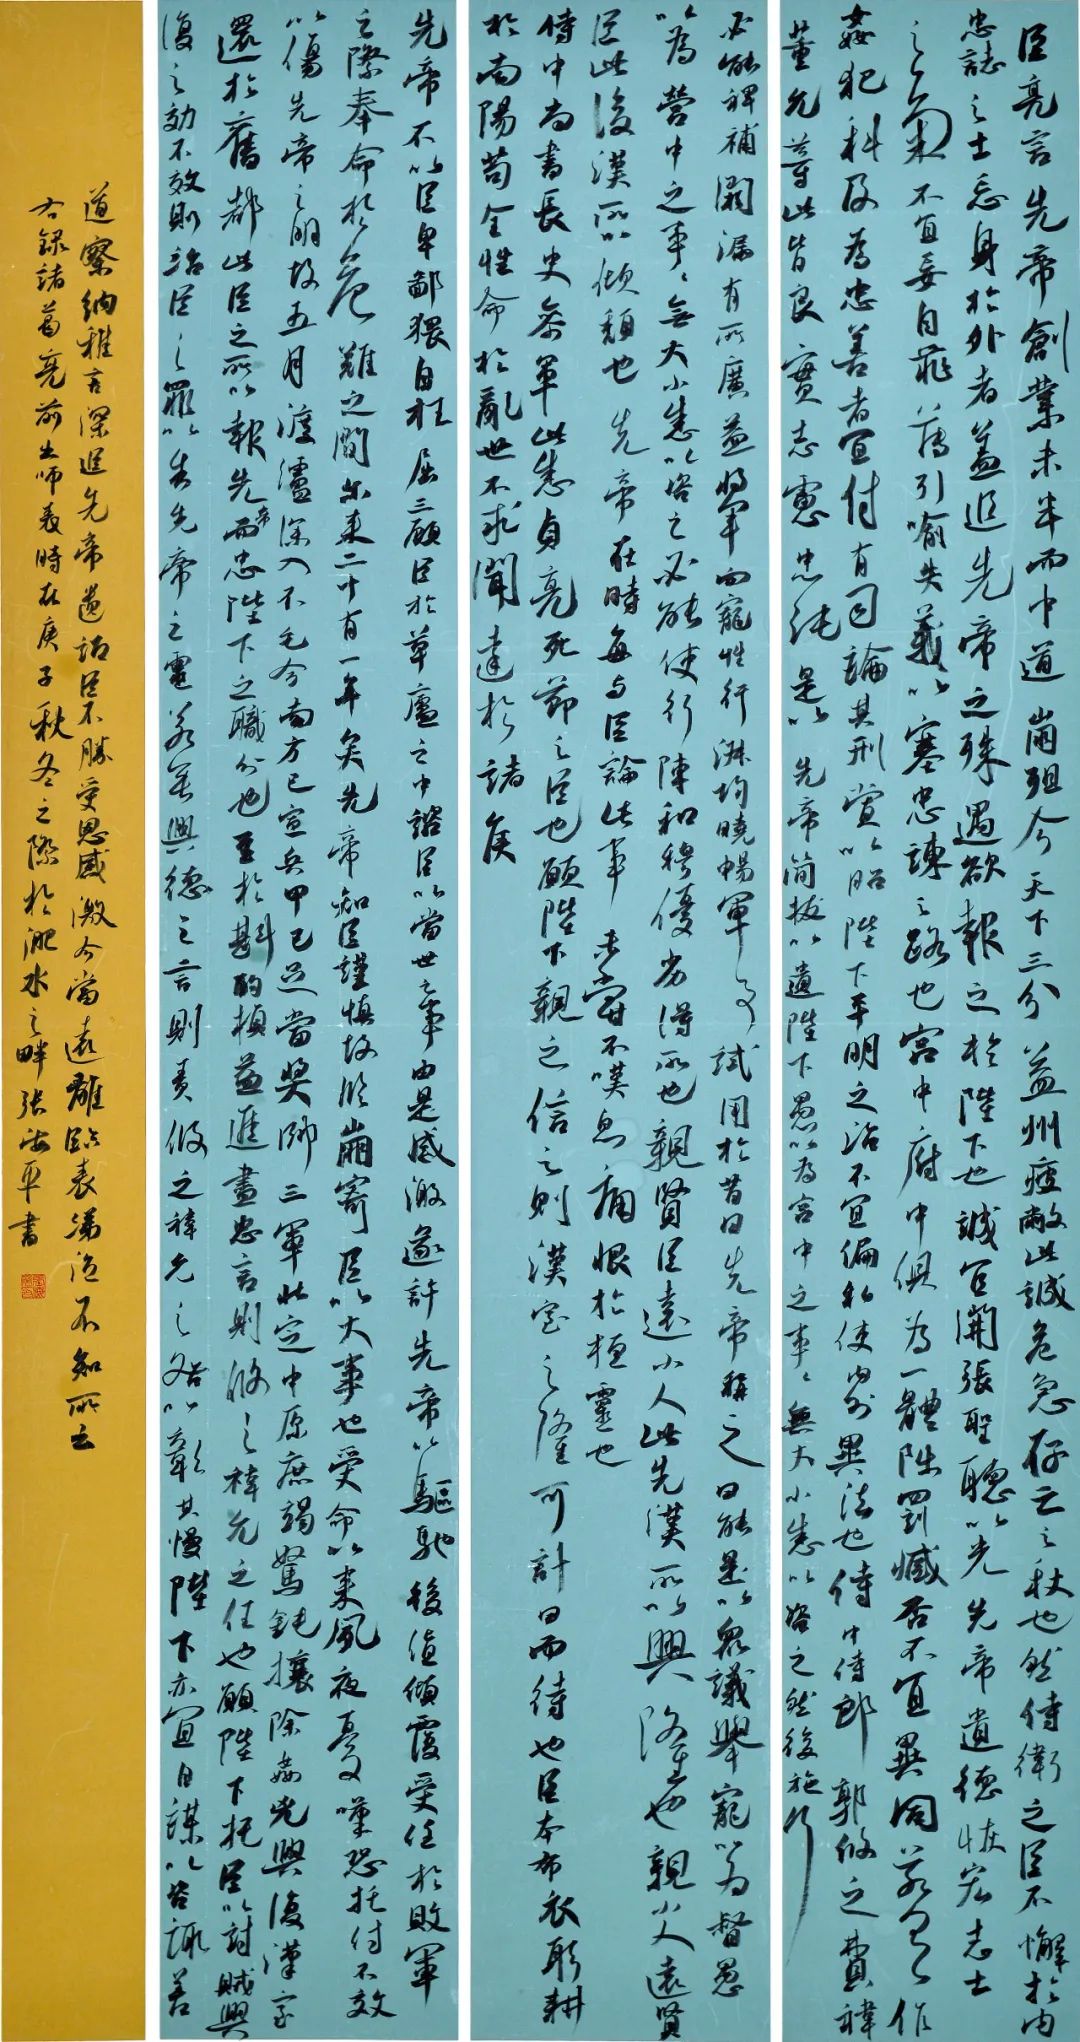 臣亮言先帝創業未半而中道崩殂今天下三分益州疲敝此誠危急存亡之秋也然侍衛之臣不懈於內
忠誌之士忘身於外者蓋追先帝之殊遇欲報之於陛下也誠宜開張聖聽以光先帝遺德恢宏志士
之氣不宜妄自菲薄引喻失義以塞忠諫之路也宮中府中俱為一體陟罰臧否不宜異同若有作
姦犯科及為忠善者宜付有司論其刑賞以昭陛下平明之治不宜偏私使內外異法也侍中侍郎郭攸之費禕
董允等此皆良實志慮忠純是以先帝簡拔以遺陛下愚以為宮中之事〻無大小悉以咨之然後施行
必能裨補闕漏有所廣益將軍向寵性行淑均曉暢軍事試用於昔日先帝稱之曰能是以眾議舉寵以為督愚
以為營中之事〻無大小悉以咨之必能使行陣和穆優劣得所也親賢臣遠小人此先漢所以興隆也親小人遠賢
臣此後漢所以傾頹也先帝在時每与臣論此事未嘗不嘆息痛恨於桓靈也
侍中尚書長史參軍此悉貞亮死節之臣也願陛下親之信之則漢室之隆可計日而待也臣本布衣躬耕
於南陽苟全性命於亂世不求聞達於諸侯
先帝不以臣卑鄙猥自枉屈三顧臣於草廬之中諮臣以當世之事由是感激遂許先帝以驅馳後值傾覆受任於敗軍
之際奉命於危難之間尔來二十有一年矣先帝知臣謹慎故臨崩寄臣以大事也受命以來夙夜憂嘆恐托付不效
以傷先帝之明故五月渡瀘深入不毛今南方已定兵甲已足當獎帥三軍北定中原庶竭駑鈍攘除姦凶興復漢室
還於舊都此臣之所以報先帝而忠陛下之職分也至於斟酌損益進盡忠言則攸之禕允之任也願陛下托臣以討賊興
復之効不效則治臣之罪以告先帝之靈若無興德之言則責攸之禕允之咎以彰其慢陛下亦宜自謀以咨諏善
道察納雅言深追先帝遺詔臣不勝受恩感激今當遠離臨表涕泣不知所云
右錄諸葛亮前出師表時在庚子秋冬之際於淝水之畔張海平書